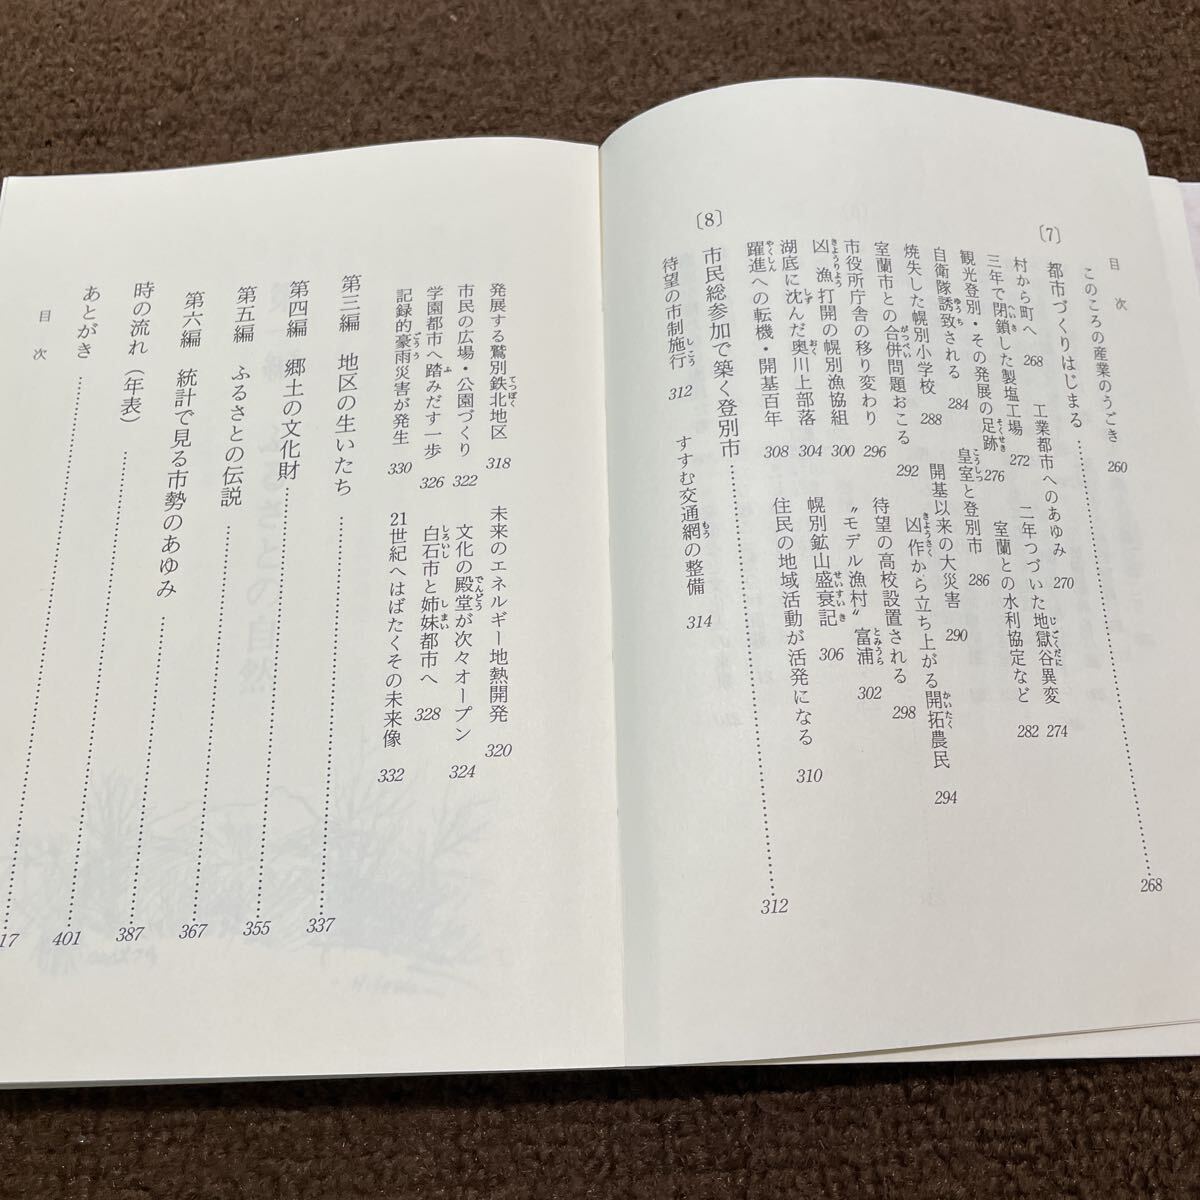 目次
このころの産業のうごき 260
〔7〕 都市づくりはじまる 268
村から町へ 268 工業都市へのあゆみ 270
三年で閉鎖した製塩工場 272 二年つづいた地獄谷異変 274
観光登別・その発展の足跡 276 室蘭との水利協定など 282
自衛隊誘致される 284 皇室と登別市 286
焼失した幌別小学校 288 開基以来の大災害 290
室蘭市との合併問題おこる 292 凶作から立ち上がる開拓農民 294
市役所庁舎の移り変わり 296 待望の高校設置される 298
凶漁打開の幌別漁協組 300 “モデル漁村”富浦 302
湖底に沈んだ奥川上部落 304 幌別鉱山盛衰記 306
躍進への転機・開基百年 308 住民の地域活動が活発になる 310
〔8〕 市民総参加で築く登別市 312
待望の市制施行 312 すすむ交通網の整備 314
発展する鷲別鉄北地区 318 未来のエネルギー地熱開発 320
市民の広場・公園づくり 322 文化の殿堂が次々オープン 324
学園都市へ踏みだす一歩 326 白石市と姉妹都市へ 328
記録的豪雨災害が発生 330 21世紀へはばたくその未来像 332
第三編 地区の生いたち 337
第四編 郷土の文化財 355
第五編 ふるさとの伝説 367
第六編 統計で見る市勢のあゆみ 387
時の流れ（年表） 401
あとがき 17
目次